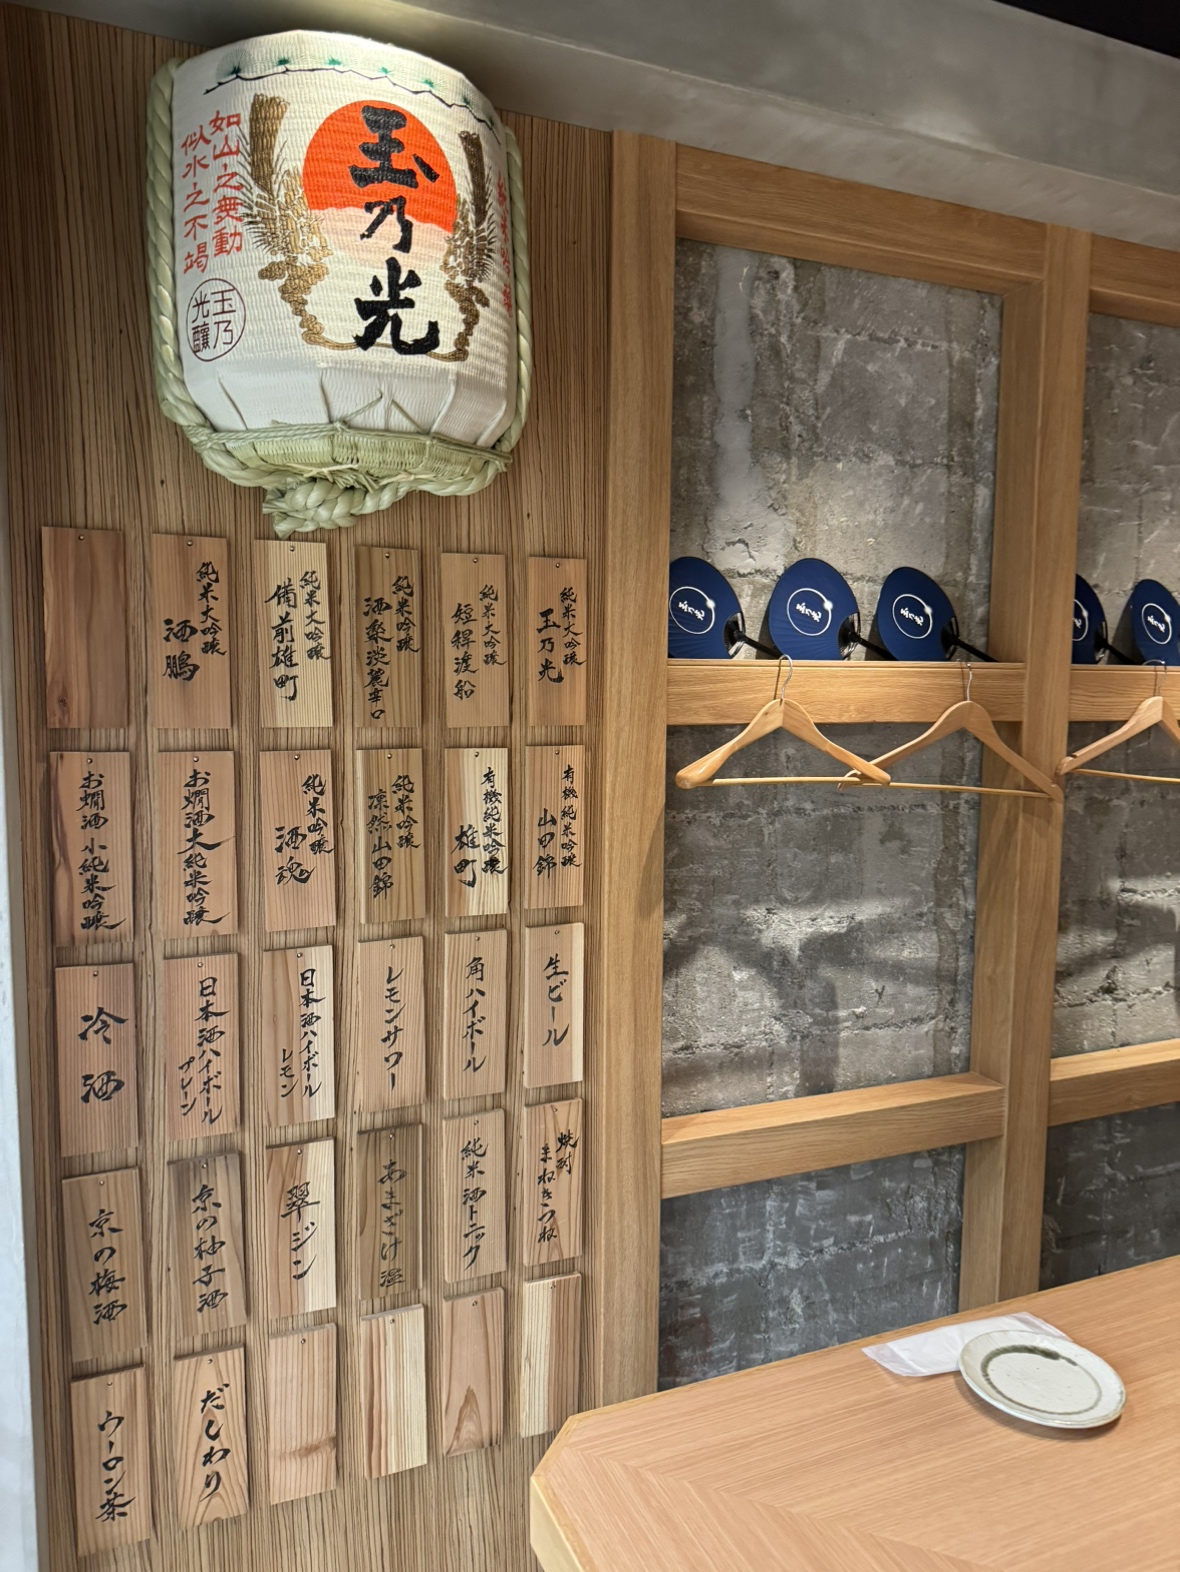 玉乃光
如山之衮動
似水之不竭
玉乃
光醸
純米吟醸
純米大吟醸
玉乃光
純米大吟醸
短稈渡船
純米大吟醸
酒楽淡麗辛口
純米大吟醸
備前雄町
純米大吟醸
酒鵬
有機純米吟醸
山田錦
有機純米吟醸
雄町
純米吟醸
凛然山田錦
純米吟醸
酒魂
お燗酒 大純米吟醸
お燗酒 小純米吟醸
生ビール
角ハイボール
レモンサワー
日本酒ハイボール
レモン
日本酒ハイボール
プレーン
冷酒
焼酎
まねきつね
純米酒トニック
あまざけ温
翠ジン
京の柚子酒
京の梅酒
だしわり
ウーロン茶
玉乃光
玉乃光
玉乃光
玉乃光
玉乃光